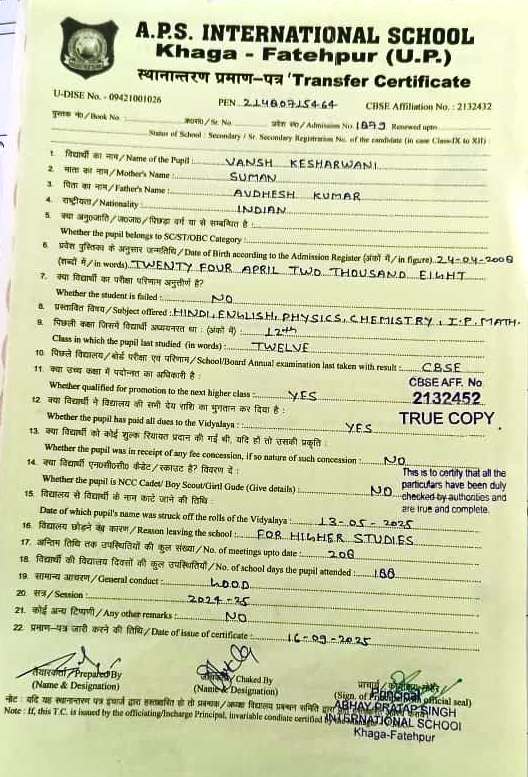 A.P.S. INTERNATIONAL SCHOOL
Khaga - Fatehpur (U.P.)
स्थानान्तरण प्रमाण-पत्र 'Transfer Certificate
U-DISE No. - 09421001026 PEN 21480715464 CBSE Affiliation No. : 2132432
पुस्तक नं०/Book No. क्र०सं०/Sr. No. प्रवेश सं०/Admission No. 1879 Renewed upto
Status of School : Secondary / Sr. Secondary Registration No. of the candidate (in case Class-IX to XII) :
1. विद्यार्थी का नाम/Name of the Pupil : VANSH KESHARWANI
2. माता का नाम/Mother's Name : SUMAN
3. पिता का नाम/Father's Name : AVDHESH KUMAR
4. राष्ट्रीयता/Nationality : INDIAN
5. क्या अनु०जाति/ज०जा०/पिछड़ा वर्ग या से सम्बन्धित है :
Whether the pupil belongs to SC/ST/OBC Category :
6. प्रवेश पुस्तिका के अनुसार जन्मतिथि/Date of Birth according to the Admission Register (अंकों में/in figure) 24-04-2008
(शब्दों में/in words) TWENTY FOUR APRIL TWO THOUSAND EIGHT
7. क्या विद्यार्थी का परीक्षा परिणाम अनुत्तीर्ण है?
Whether the student is failed : NO
8. प्रस्तावित विषय/Subject offered : HINDI, ENGLISH, PHYSICS, CHEMISTRY, I.P, MATH.
9. पिछली कक्षा जिसमें विद्यार्थी अध्ययनरत था : (अंकों में) : 12th
Class in which the pupil last studied (in words) : TWELVE
10. पिछले विद्यालय/बोर्ड परीक्षा एवं परिणाम/School/Board Annual examination last taken with result : CBSE
11. क्या उच्च कक्षा में पदोन्नत का अधिकारी है :
CBSE AFF. No
Whether qualified for promotion to the next higher class : YES 2132452
12. क्या विद्यार्थी ने विद्यालय की सभी देय राशि का भुगतान कर दिया है :
TRUE COPY
Whether the pupil has paid all dues to the Vidyalaya : YES
13. क्या विद्यार्थी को कोई शुल्क रियायत प्रदान की गई थी, यदि हाँ तो उसकी प्रकृति :
Whether the pupil was in receipt of any fee concession, if so nature of such concession : NO
14. क्या विद्यार्थी एन०सी०सी० कैडेट/स्काउट है? विवरण दें :
This is to certify that all the
particulars have been duly
Whether the pupil is NCC Cadet/ Boy Scout/Girl Gude (Give details) : NO
checked by authorities and
are true and complete.
15. विद्यालय से विद्यार्थी के नाम काटे जाने की तिथि :
Date of which pupil's name was struck off the rolls of the Vidyalaya : 13-05-2025
16. विद्यालय छोड़ने का कारण/Reason leaving the school : FOR HIGHER STUDIES
17. अन्तिम तिथि तक उपस्थितियों की कुल संख्या/No. of meetings upto date : 208
18. विद्यार्थी की विद्यालय दिवसों की कुल उपस्थितियाँ/No. of school days the pupil attended : 188
19. सामान्य आचरण/General conduct : GOOD
20. सत्र/Session : 2024-25
21. कोई अन्य टिप्पणी/Any other remarks : NO
22. प्रमाण-पत्र जारी करने की तिथि/Date of issue of certificate : 16-09-2025
तैयारकर्ता/Prepared By
(Name & Designation)
Cheked By
(Name & Designation)
प्राचार्य
(Sign. of official seal)
Principal
ABHAY PRATAP SINGH
INTERNATIONAL SCHOOL
Khaga-Fatehpur
नोट : यदि यह स्थानान्तरण पत्र इंचार्ज द्वारा हस्ताक्षरित हो तो प्रबन्धक/अध्यक्ष विद्यालय प्रबन्धन समिति द्वारा
Note : If, this T.C. is issued by the officiating/Incharge Principal, invariable condiate certified by